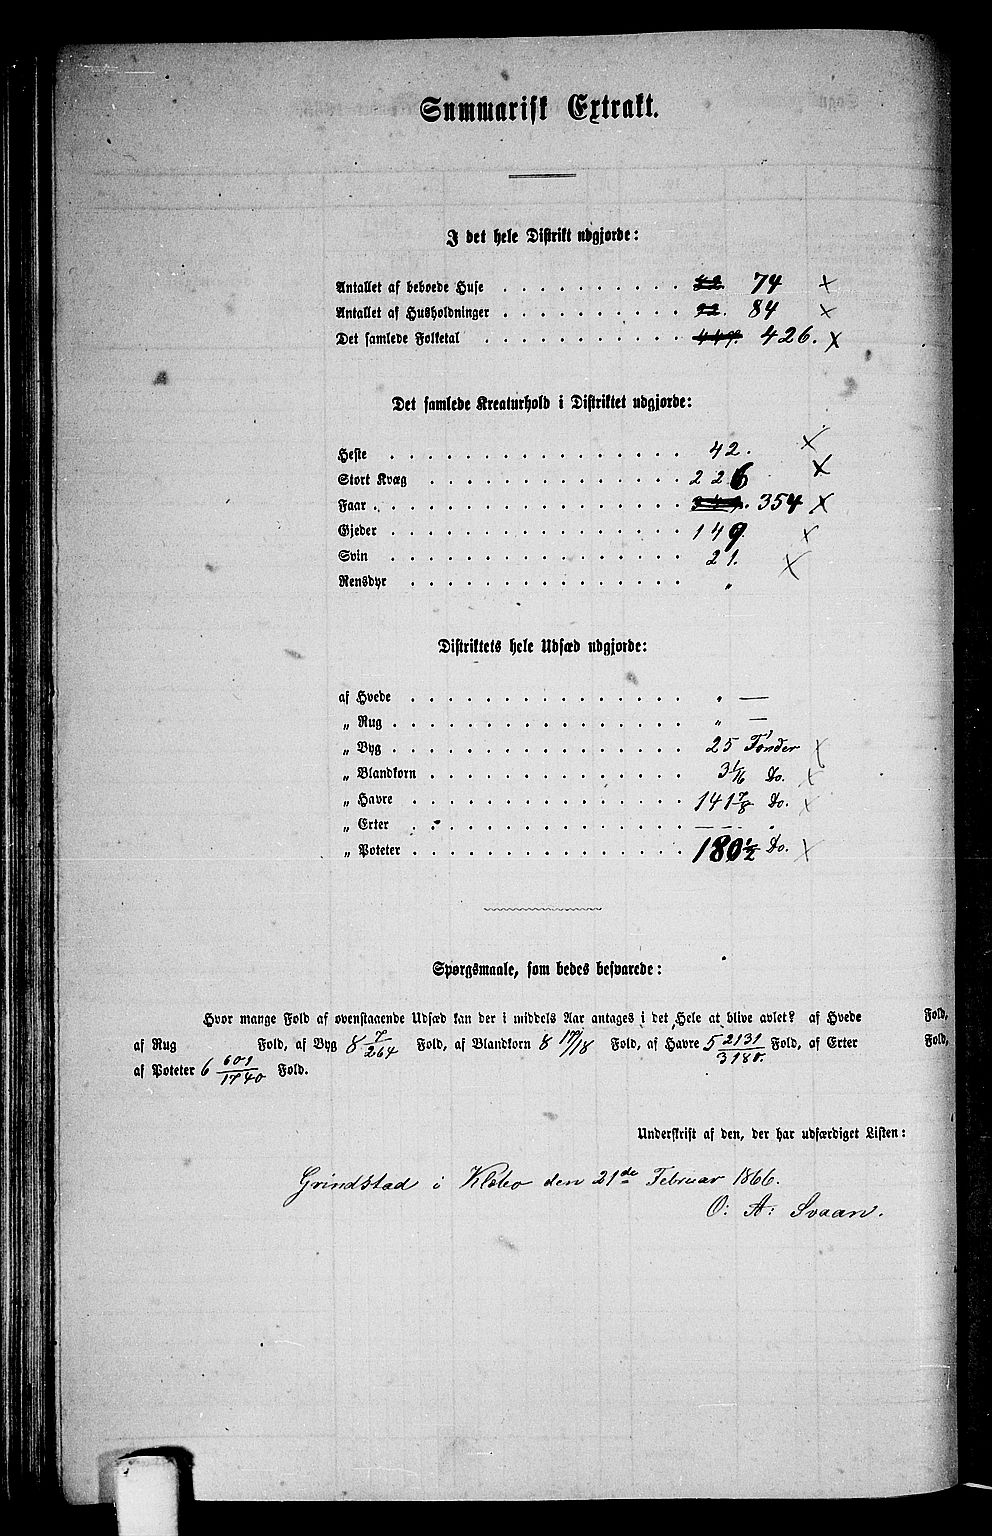 Summarisk Extrakt.
I det hele Distrikt udgjorde:
Antallet af beboede Huse . . . . . . . . . . 74 ×
Antallet af Husholdninger . . . . . . . . . . 92. 84 ×
Det samlede Folketal . . . . . . . . . . . 449. 426. ×
Det samlede Kreaturhold i Distriktet udgjorde:
Heste . . . . . . . . . . . . . . . . 42. ×
Stort Kvæg . . . . . . . . . . . . . . 226 ×
Faar . . . . . . . . . . . . . . . . . 354 ×
Gjeder . . . . . . . . . . . . . . . . 149 ×
Svin . . . . . . . . . . . . . . . . 21. ×
Rensdyr . . . . . . . . . . . . . . . "
Distriktets hele Udsæd udgjorde:
af Hvede . . . . . . . . . . . . . . . " —
„ Rug . . . . . . . . . . . . . . . . " —
„ Byg . . . . . . . . . . . . . . . . 25 Tønder ×
„ Blandkorn . . . . . . . . . . . . . . 3 1/16 Do. ×
„ Havre . . . . . . . . . . . . . . . 141 7/8 Do. ×
„ Erter . . . . . . . . . . . . . . . — — —
„ Poteter . . . . . . . . . . . . . . . 180 1/2 Do. ×
Spørgsmaale, som bedes besvarede:
Hvor mange Fold af ovenstaaende Udsæd kan der i middels Aar antages i det Hele at blive avlet? af Hvede Fold,
af Rug Fold, af Byg 8 7/264 Fold, af Blandkorn 8 17/18 Fold, af Havre 5 2131/3180. Fold, af Erter Fold,
af Poteter 6 601/1740 Fold.
Underskrift af den, der har udfærdiget Listen:
Grindstad i Klæbo den 21de Februar 1866.
O: A: Svaan.